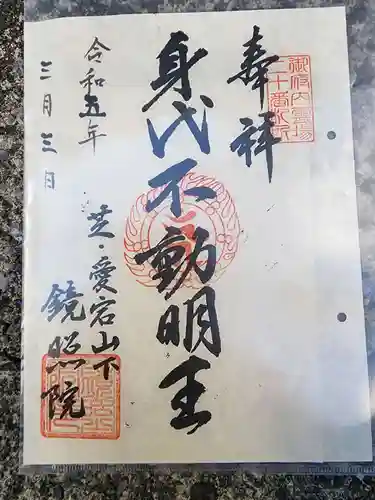 奉拝
御府内霊場
二十番札所
身代不動明王
芝・愛宕山下
鏡照院
令和五年
三月三日